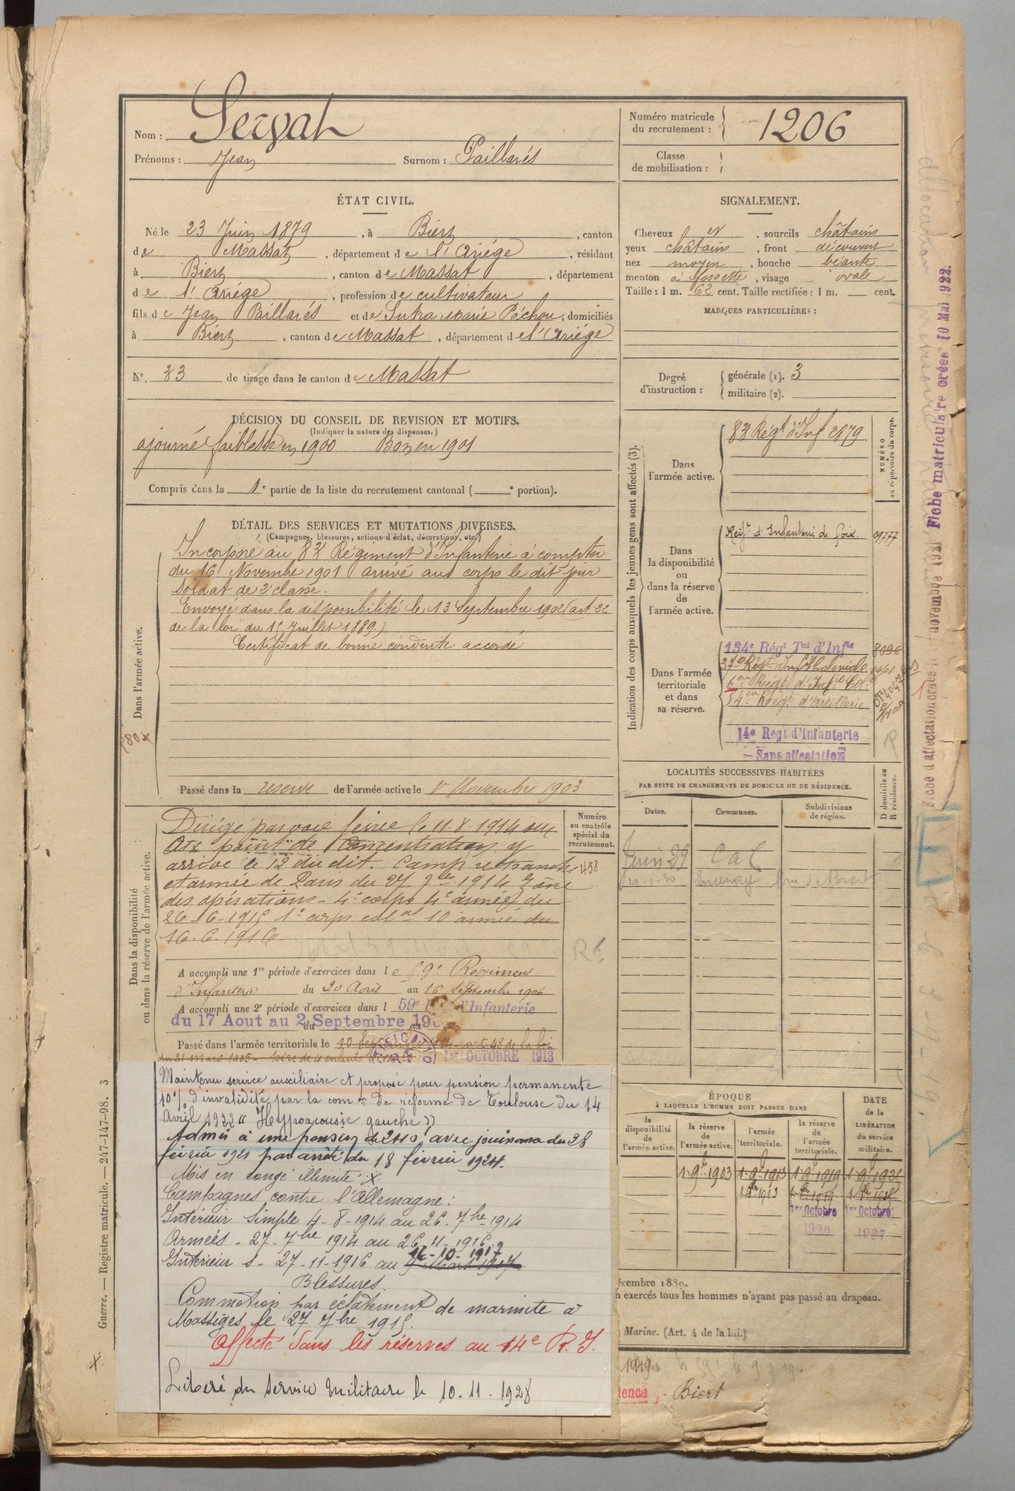 Nom : Servat
Prénoms : Jean Surnom : Paillarés
Numéro matricule du recrutement : 1206
Classe de mobilisation :
ÉTAT CIVIL.
Né le 23 Juin 1879, à Biert, canton
de Massat, département de l'Ariège, résidant
à Biert, canton de Massat, département
de l'Ariège, profession de cultivateur
fils de Jean Paillarés et de Marie Péchou, domiciliés
à Biert, canton de Massat, département de l'Ariège
N° 83 de tirage dans le canton de Massat
SIGNALEMENT.
Cheveux , sourcils châtains
yeux châtains, front découvert
nez moyen, bouche béante
menton à fossette, visage ovale
Taille : 1 m. 62 cent. Taille rectifiée : 1 m. cent.
MARQUES PARTICULIÈRES :
Degré d'instruction : générale (1). 3
militaire (2).
DÉCISION DU CONSEIL DE REVISION ET MOTIFS.
(Indiquer la nature des dispenses.)
ajourné faiblesse en 1900 Bon en 1901
Compris dans la 1e partie de la liste du recrutement cantonal ( e portion).
DÉTAIL DES SERVICES ET MUTATIONS DIVERSES.
(Campagnes, blessures, actions d'éclat, décorations, etc.)
Dans l'armée active.
Incorporé au 83e Régiment d'Infanterie à compter
du 16 Novembre 1901 arrivé au corps le dit jour
soldat de 2e classe.
Envoyé dans la disponibilité le 13 Septembre 1902 (art 22
de la loi du 15 Juillet 1889)
Certificat de bonne conduite accordé
Passé dans la réserve de l'armée active le 1er Novembre 1903
Dans la disponibilité ou dans la réserve de l'armée active.
Numéro au contrôle spécial du recrutement.
1458
Dirigé par voie ferrée le 11.8.1914 au
point de concentration y
arrivé le 12 du dit. Camp retranché
et armée de Paris du 27 7bre 1914 Zone
des opérations - 4e corps 4e armée du
26-6-1915 1er corps 10 armée du
16-6-1916
A accompli une 1re période d'exercices dans le 59e Régiment
d'Infanterie du 20 Août au 16 Septembre 1906
A accompli une 2e période d'exercices dans l 59e d'Infanterie
du 17 Aout au 2 Septembre
Passé dans l'armée territoriale le 1er OCTOBRE 1913
Maintenu service auxiliaire et proposé pour pension permanente
10% d'invalidité par la comon de réforme de Toulouse du 14
Avril 1922 « Hypoacousie gauche »
Admis à une pension de 240f avec jouissance du 28
février 1921 par arrêté du 18 février 1924.
Mis en congé illimité :
Campagnes contre l'Allemagne :
Intérieur simple 4-8-1914 au 26 7bre 1914
Armées - 27 7bre 1914 au 26-11-1916
Intérieur s - 27-11-1916 au 16-10-1917
Blessures
Commotion par éclatement de marmite à
Massiges le 27 7bre 1915
Affecté dans les réserves au 14e R.I.
Libéré du Service Militaire le 10.11.1928
Indication des corps auxquels les jeunes gens sont affectés (3).
NUMÉRO au répertoire du corps.
Dans l'armée active.
83e Régt d'Inf 2879
Dans la disponibilité ou dans la réserve de l'armée active.
Régt d'Infanterie de Foix 09777
Dans l'armée territoriale et dans sa réserve.
134e Régt Tal d'Infie
6e Régt d'Infie
Régt d'artillerie
14e Regt d'Infanterie
- Sans affectation
LOCALITÉS SUCCESSIVES HABITÉES
PAR SUITE DE CHANGEMENTS DE DOMICILE OU DE RÉSIDENCE.
Dates. Communes. Subdivisions de région. D domicile ou R résidence.
ÉPOQUE
À LAQUELLE L'HOMME DOIT PASSER DANS
la disponibilité de l'armée active. la réserve de l'armée active. l'armée territoriale. la réserve de l'armée territoriale.
DATE de la LIBÉRATION du service militaire.
1 9bre 1903 1 9bre 1913 1 9bre 1919 1 9bre 1926
1er Octobre 1er Octobre
écembre 1889.
n exercés tous les hommes n'ayant pas passé au drapeau.
Marine. (Art. 4 de la loi.)
dence, - Biert
Guerre. — Registre matricule. — 247-147-98. 3
Fiche matriculaire créée 10 Mai 1922.